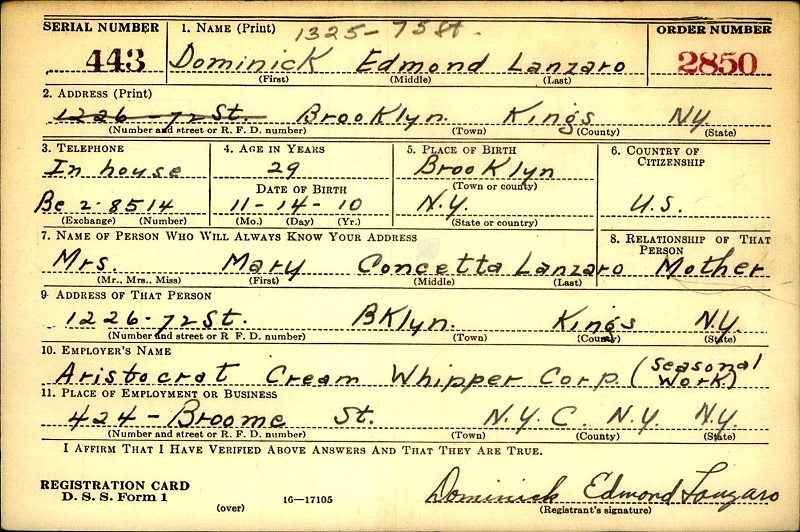 SERIAL NUMBER 1. NAME (Print) 1325-75 St. ORDER NUMBER
443 Dominick Edmond Lanzaro 2850
(First) (Middle) (Last)
2. ADDRESS (Print)
1226-72 St. Brooklyn Kings NY.
(Number and street or R. F. D. number) (Town) (County) (State)
3. TELEPHONE 4. AGE IN YEARS 5. PLACE OF BIRTH 6. COUNTRY OF CITIZENSHIP
In house 29 Brooklyn
DATE OF BIRTH (Town or county)
Be 2-8514 11-14-10 N.Y. U.S.
(Exchange) (Number) (Mo.) (Day) (Yr.) (State or country)
7. NAME OF PERSON WHO WILL ALWAYS KNOW YOUR ADDRESS 8. RELATIONSHIP OF THAT PERSON
Mrs. Mary Concetta Lanzaro Mother
(Mr., Mrs., Miss) (First) (Middle) (Last)
9. ADDRESS OF THAT PERSON
1226-72 St. BKlyn. Kings N.Y.
(Number and street or R. F. D. number) (Town) (County) (State)
10. EMPLOYER'S NAME
Aristocrat Cream Whipper Corp. (Seasonal Work)
11. PLACE OF EMPLOYMENT OR BUSINESS
424-Broome St. N.Y.C. N.Y. N.Y.
(Number and street or R. F. D. number) (Town) (County) (State)
I AFFIRM THAT I HAVE VERIFIED ABOVE ANSWERS AND THAT THEY ARE TRUE.
REGISTRATION CARD
D. S. S. Form 1 (over) 16-17105 Dominick Edmond Lanzaro
(Registrant's signature)